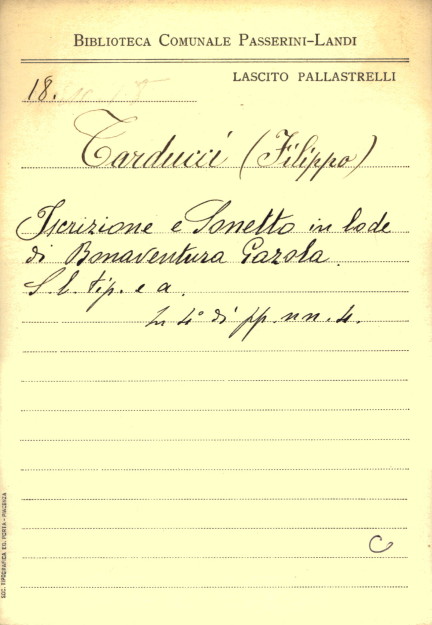 BIBLIOTECA COMUNALE PASSERINI-LANDI
LASCITO PALLASTRELLI
18.
Tarducci (Filippo)
Iscrizione e Sonetto in lode
di Bonaventura Gazola.
S. l. tip. e a.
In 4° di pp. nn. 4.
C
SOC. TIPOGRAFICA ED. PORTA - PIACENZA